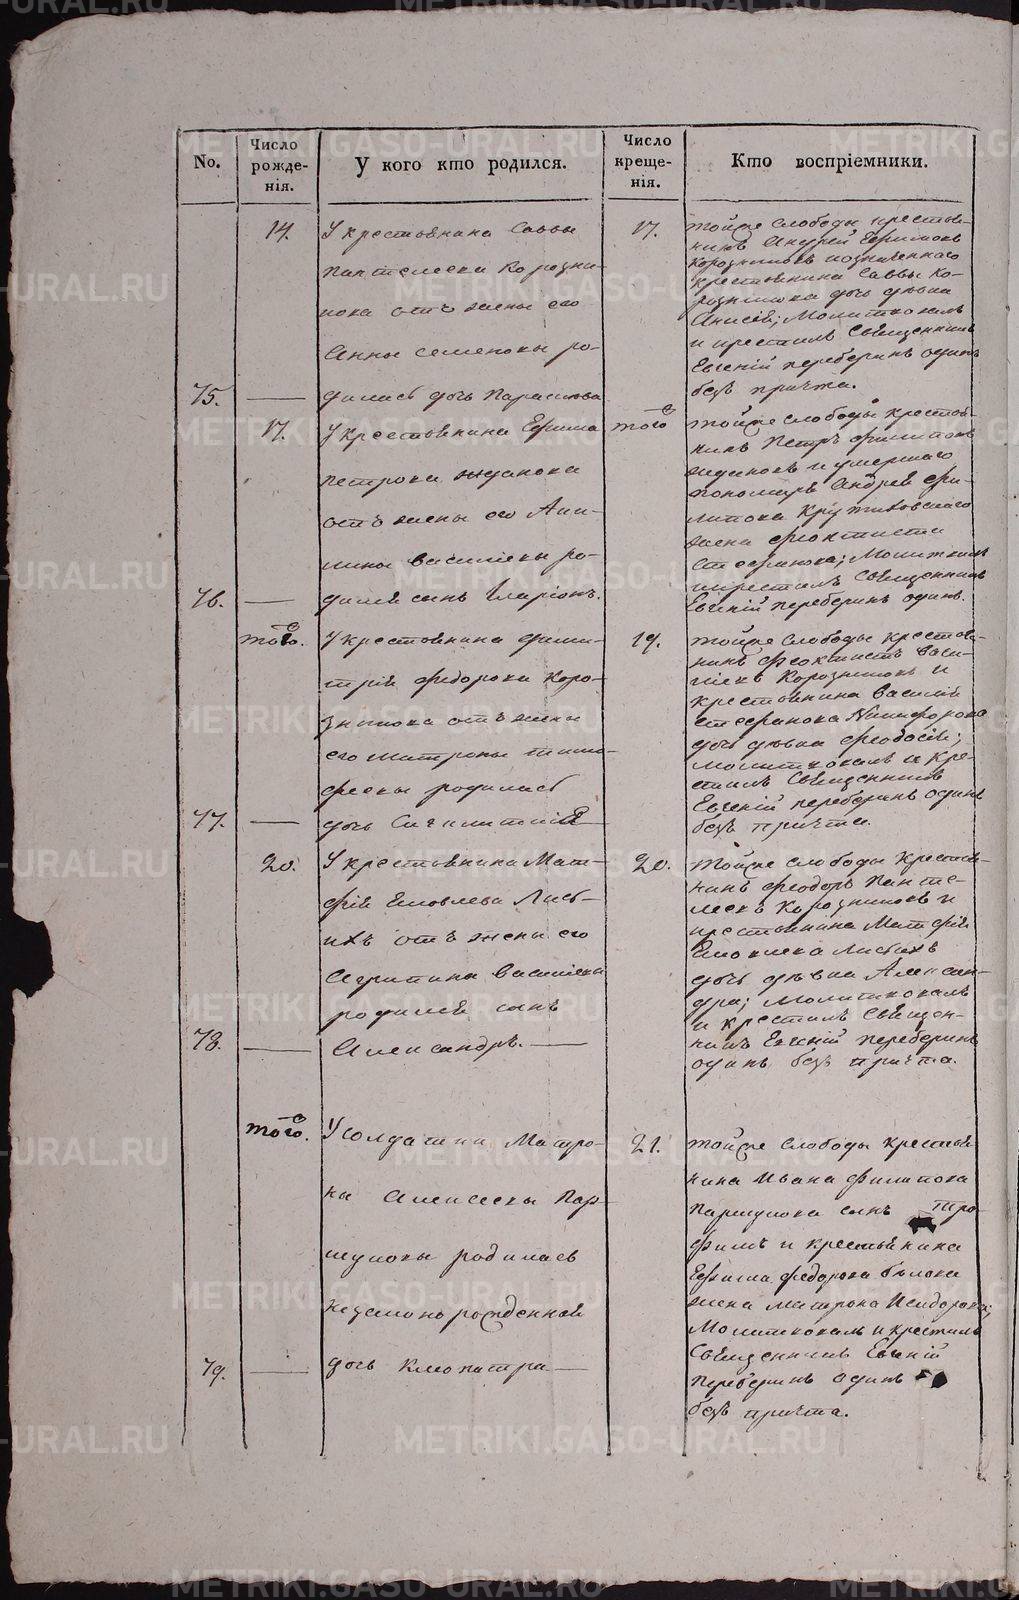 No.
Число рожде-нія.
У кого кто родился.
Число креще-нія.
Кто воспріемники.
14.
У крестьянина Саввы
Пантелеева Корозни-
кова отъ жены его
Анны Семеновы ро-
75.
дилась дочь Параскева
17.
тойже слободы крестья-
нинъ Андрей Ефимовъ
Корозниковъ и означеннаго
крестьянина Саввы Ко-
розникова дочь девка
Анисія; Молитвовалъ
и крестилъ Священникъ
Евгеній переберинъ одинъ
безъ причта.
17.
У крестьянина Ефима
Петрова Жданова
отъ жены его Аки-
лины Васильевы ро-
76.
дился сынъ Иларіонъ.
того
тойже слободы крестья-
нинъ Петръ Филиповъ
Ждановъ и умершаго
пономаря Андрея Фи-
липова
жена Феоктиста
Стефанова; Молитвовалъ
и крестилъ Священникъ
Евгеній переберинъ одинъ.
того.
У крестьянина Дими-
трія Федорова Коро-
зникова отъ жены
его Матроны Тимо-
феевы родилась
77.
дочь Сигклитикія
19.
тойже слободы крестья-
нинъ Феоктистъ Васи-
льевъ Корозниковъ и
крестьянина Василія
Стефанова Никифорова
дочь девка Феодосія;
молитвовалъ и кре-
стилъ Священникъ
Евгеній переберинъ одинъ
безъ причта.
20.
У крестьянина Мат-
фія Яковлева Лись-
ихъ отъ жены его
Агрипина Васильева
родился сынъ
78.
Александръ.
20.
тойже слободы крестья-
нинъ Феодоръ Панте-
леевъ Корозниковъ и
крестьянина Матфія
Яковлева Лисьихъ
дочь девка Алексан-
дра; Молитвовалъ
и крестилъ Священ-
никъ Евгеній переберинъ
одинъ безъ причта.
того.
У солдатки Матро-
ны Алексеевы Пар-
шуковы родилась
незаконо рожденная
79.
дочь Клеопатра
21.
тойже слободы крестья-
нина Ивана Филипова
Паршукова сынъ Тро-
фимъ и крестьянина
Ефима Федорова Быкова
жена Матрона Исидорова;
Молитвовалъ и крестилъ
Священникъ Евгеній
переберинъ одинъ
безъ причта.
METRIKI.GASO-URAL.RU